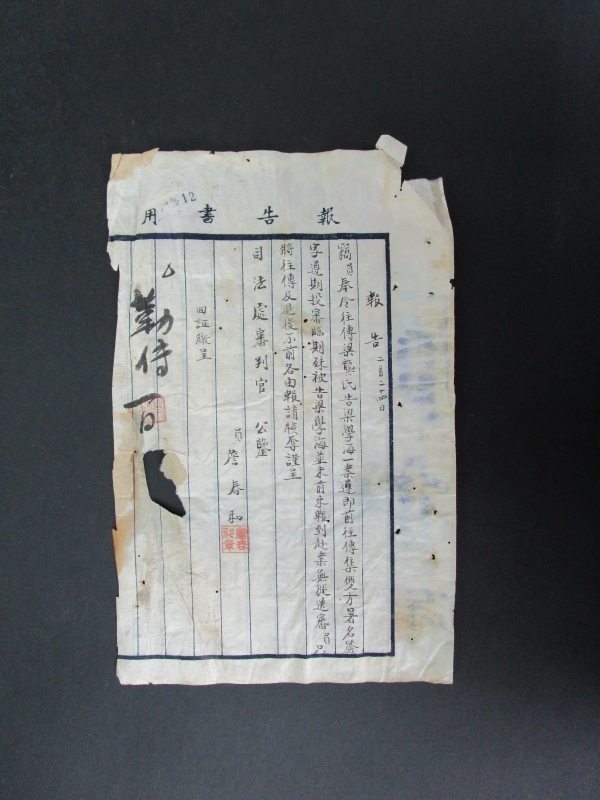 12
報告書用
報告 二月二十四日
竊員奉令往傳梁龍氏告梁學海一案遵即前往傳集雙方署名簽
字遵期投審臨期殊被告梁學海並未前來報到赴案無從送審員只
將往傳及退後不前各由報請核奪謹呈
司法處審判官 公鑒
員詹春和
詹春和章
回証繳呈
勒傳